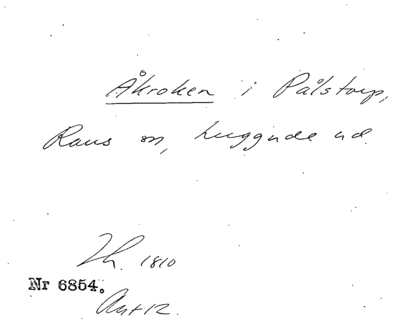 Åkroken i Pålstorp,
Raus sn, Luggude hd.
Lh. 1810
Nr 6854.
Ant 12.